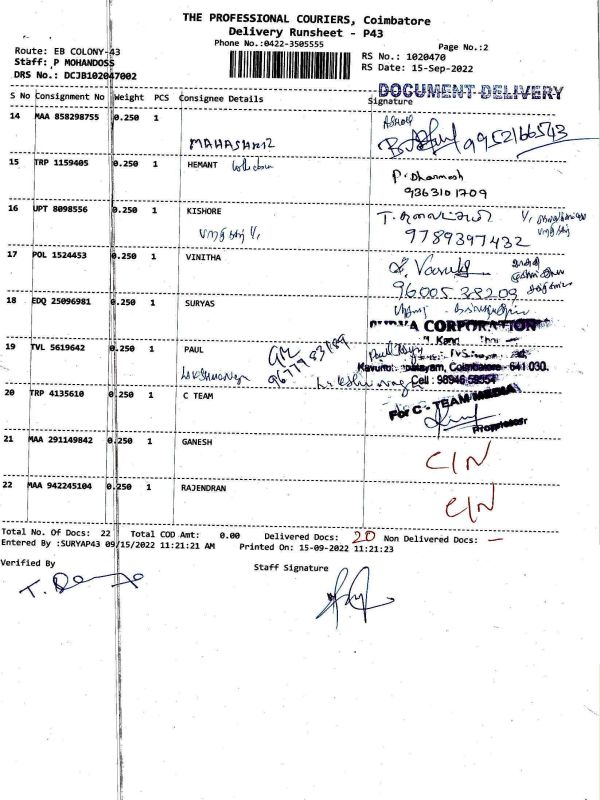 THE PROFESSIONAL COURIERS, Coimbatore
Delivery Runsheet - P43
Phone No.:0422-3505555
Page No.:2
Route: EB COLONY-43
RS No.: 1020470
Staff: P MOHANDOSS
RS Date: 15-Sep-2022
DRS No.: DCJB102047002
DOCUMENT DELIVERY
S No Consignment No Weight PCS Consignee Details Signature
14 MAA 858298755 0.250 1
9952166543
15 TRP 1159405 0.250 1 HEMANT
P. Dharmesh
9363101709
16 UPT 8098556 0.250 1 KISHORE
9789397432
17 POL 1524453 0.250 1 VINITHA
18 EDQ 25096981 0.250 1 SURYAS
CORPORATION
19 TVL 5619642 0.250 1 PAUL
9677983189
Coimbatore - 641 030.
Cell : 98946 59554
20 TRP 4135610 0.250 1 C TEAM
For C - TEAM MEDIA
Proprietor
21 MAA 291149842 0.250 1 GANESH
C/N
22 MAA 942245104 0.250 1 RAJENDRAN
C/N
Total No. Of Docs: 22 Total COD Amt: 0.00 Delivered Docs: 20 Non Delivered Docs: —
Entered By :SURYAP43 09/15/2022 11:21:21 AM Printed On: 15-09-2022 11:21:23
Verified By
Staff Signature